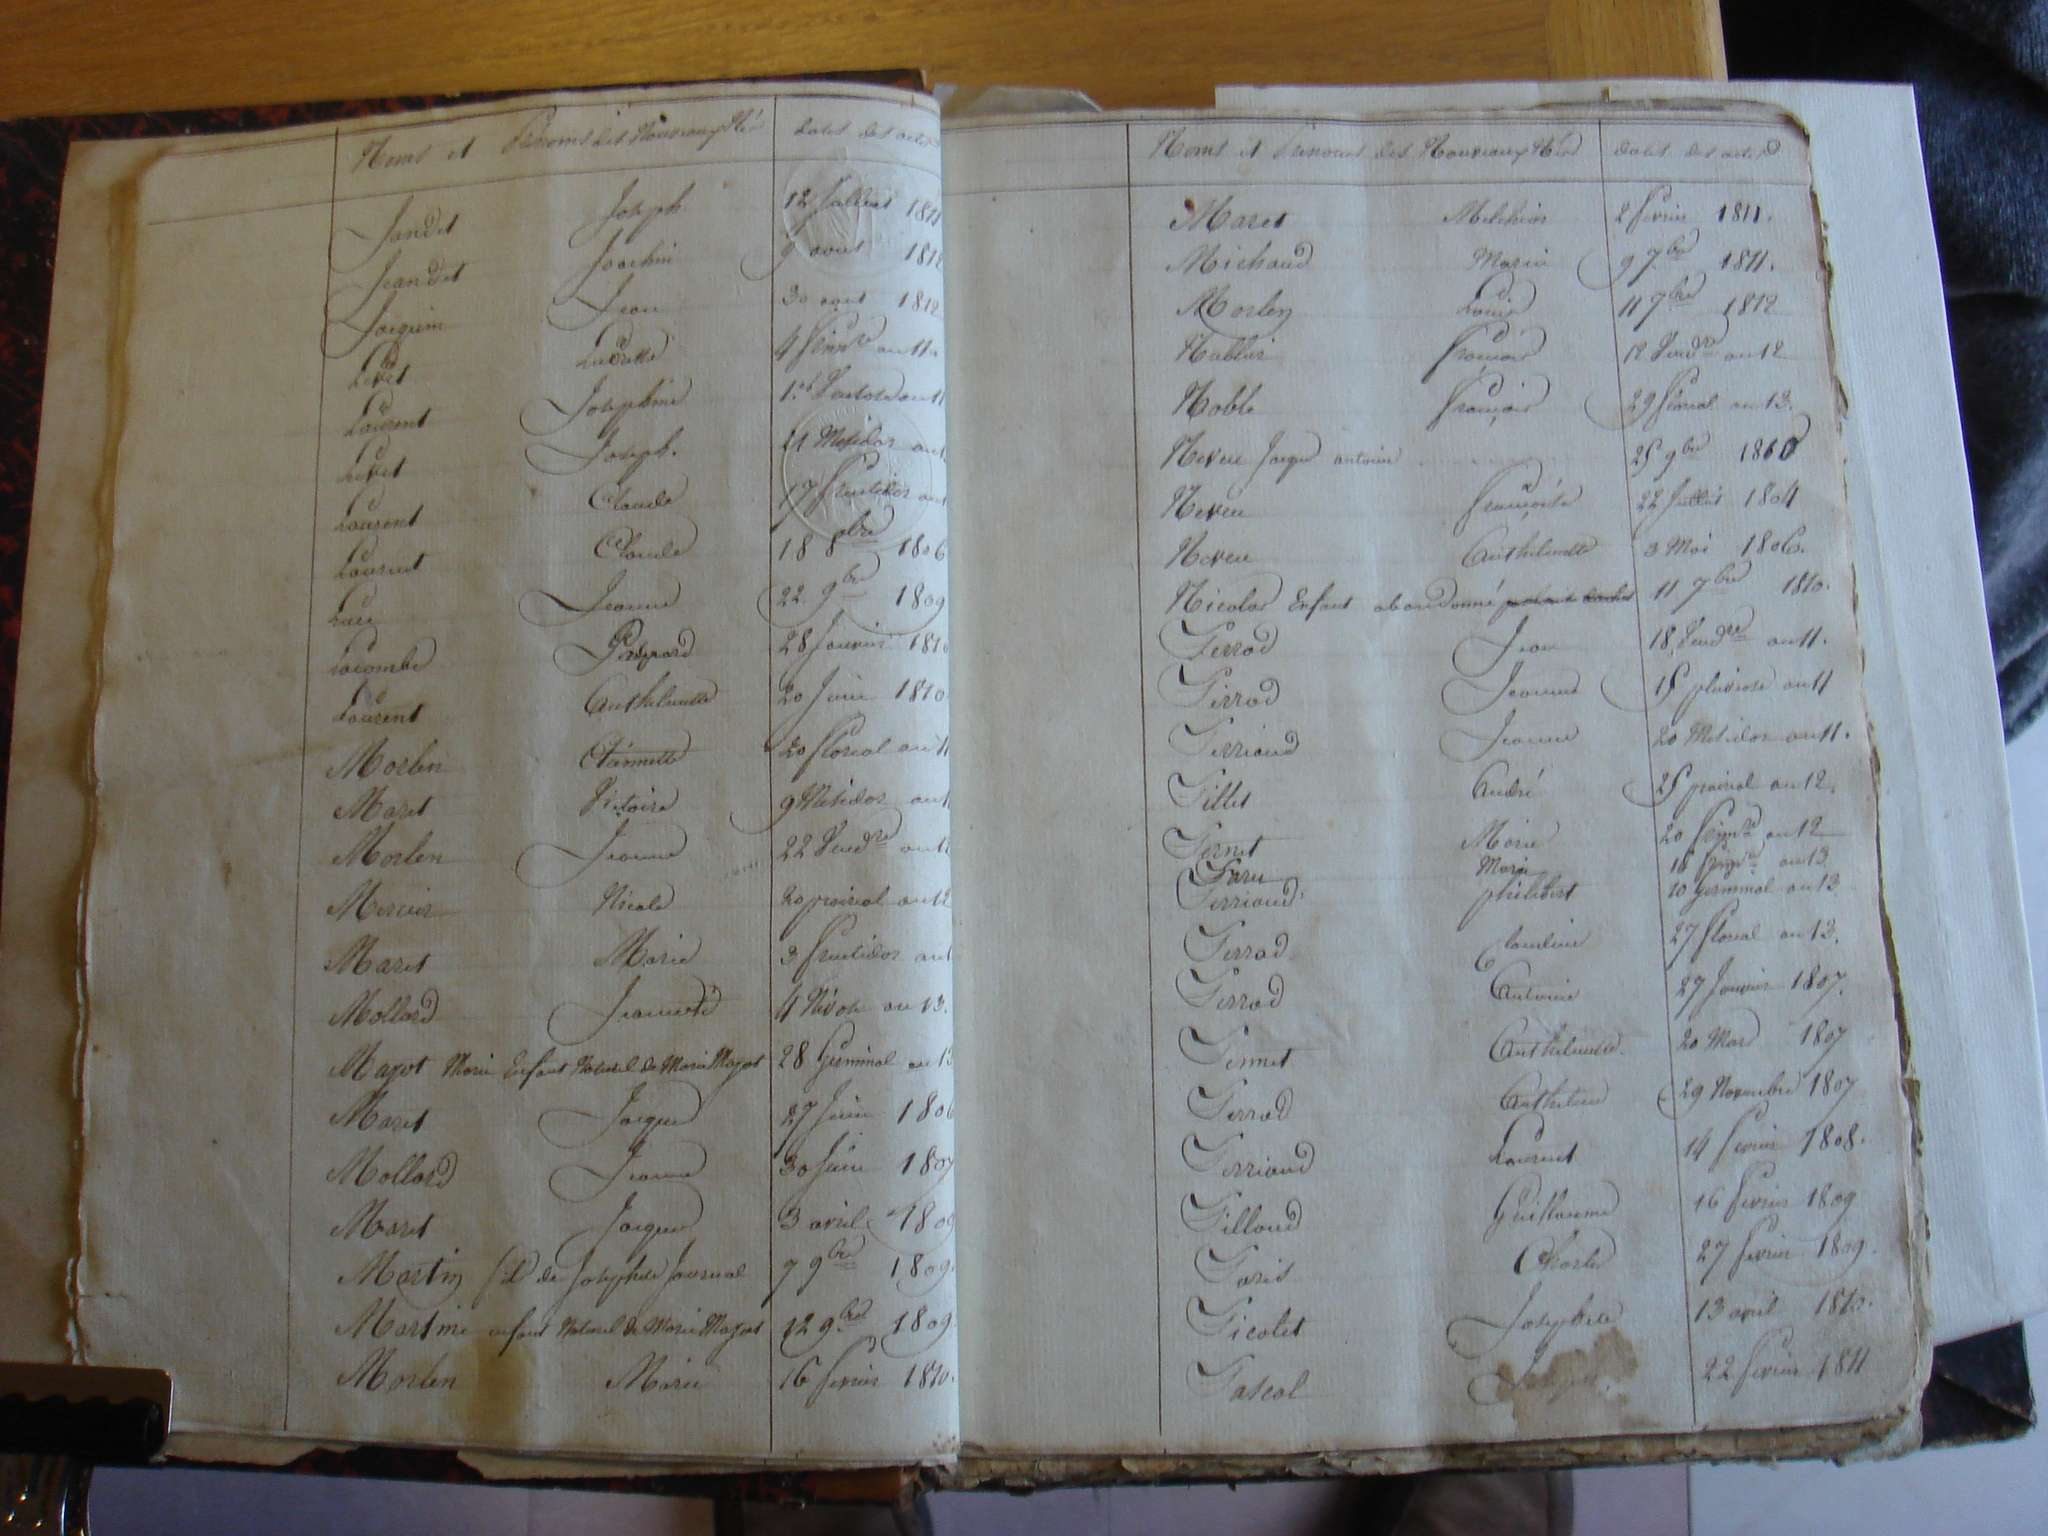 Noms et Prénoms des Nouveaux Nés dates des actes
Jandet Joseph 12 Juillet 1811
Jeandet Joachim 9 aout 1812
Jacquin Jean 30 aout 1812
Livet Claudette 4 frim.re an 11.
Laurent Josephine 1.er Ventose an 11
Livet Joseph. 21 Messidor an
Laurent Claude 17 fructidor an
Laurent Claude 18 8bre 1806
Luce Jeanne 22 9bre 1809
Lacombe Gaspard 28 Janvier 1810
Laurent Anthelmette 20 Juin 1810
Morlen Etiennette 20 floreal an 11
Maret Victoire 9 Messidor an 11
Morlen Jeanne 22 Vend.re an 1
Mercier Nicole 20 prairial an 12
Maret Marie 3 fructidor an
Mollard Jeannette 4 Nivose an 13.
Mayot Marie Enfant Naturel de Marie Mayot 28 Germinal an 13
Maret Jacques 27 Juin 1806
Mollard Jeanne 30 Juin 1807
Maret Jacques 3 avril 1809
Martin fil de Josephe Journal 7 9bre 1809.
Martine enfant Naturel de Marie Mayot 12 9bre 1809.
Morlen Marie 16 fevrier 1810.
Noms et Prénoms des Nouveaux Nés dates des actes
Maret Melchior 2 fevrier 1811.
Michaud Marie 9 7bre 1811.
Morlen Louis 11 7bre 1812
Nallet François 12 Vend.re an 12
Noble François 29 floreal an 13.
Neveu Jacques antoine 25 9bre 1810
Neveu Françoise 22 Juillet 1804
Neveu Anthelmette 3 Mai 1806.
Nicolas Enfant abandonné 11 7bre 1810.
Perrod Jean 18 Vend.re an 11.
Perrod Jeanne 15 pluviose an 11
Perriaud Jeanne 20 Messidor an 11.
Pillet André 25 prairial an 12.
Pernet Marie 20 frim.re an 12
Marie 16 frim.re an 13
Perriaud philibert 10 germinal an 13
Perrod Claudine 27 floreal an 13.
Perrod Antoine 27 Janvier 1807.
Pernet Anthelmette. 20 Mars 1807
Perrod Anthelme 29 Novembre 1807
Perriaud Laurent 14 fevrier 1808.
Pilloud Guillaume 16 fevrier 1809
Paris Charles 27 fevrier 1809.
Picolet Josephte 13 avril 1810.
Pascal 22 fevrier 1811